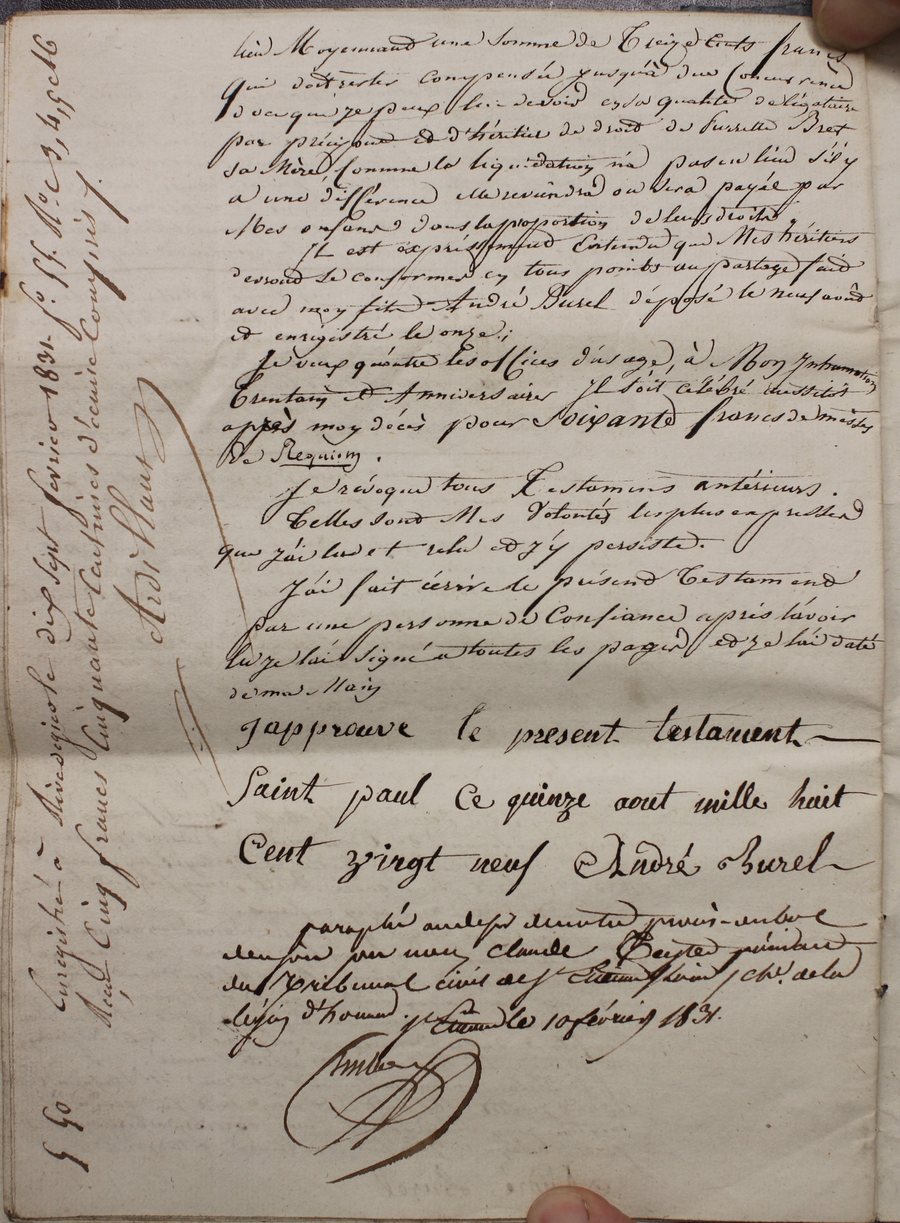 lieu Moyennand une somme de Treize Cents francs
qui doit rester compensée jusqu'à due Concurrence
de ce que je peux lui devoir en sa qualité de légataire
par préciput et d'héritier de droit de Pierrette Bret
sa Mère, Comme la liquidation n'a pas eu lieu S'il y
a une différence elle reviendra ou sera payée par
Mes enfans dans la proportion de leurs droits,
Il est expressement Entendu que Mes héritiers
devrond Se conformer en tous points au partage faid
avec moy fils André Burel déposé le neuf
et enregistré le onze ;
Je veux qu'outre les offices d'usage, à Mon Inhumation
Trentain et Anniversaire Il Soit Célébré aussitôt
après moy décès pour Soixante francs de Messes
de Requiem.
Je révoque tous Testamens antérieurs.
Telles sond Mes Volontés les plus expresses
que j'ai lu et relu et j'y persiste.
J'ai fait écrire le présend Testamend
par une personne de Confiance après l'avoir
lu je l'ai Signé a toutes les pages et je l'ai daté
de ma Main
J'approuve le present testament
Saint paul ce quinze aout mille huit
Cent vingt neuf André Burel
paraphé au desir de notre procès-verbal
de ce jour par nous Claude Teyter président
du Tribunal civil de St Etienne Loire, Chr. de la
légion d'honneur. St Etienne le 10 février 1831.
Enregistré à Rivedegier le dix sept fevrier 1831. fo. 55. Ro. C 3, 4, 5 et 6
Reçu Cinq francs Cinquante Centimes décime Compris /.
Ardillaut
5 50